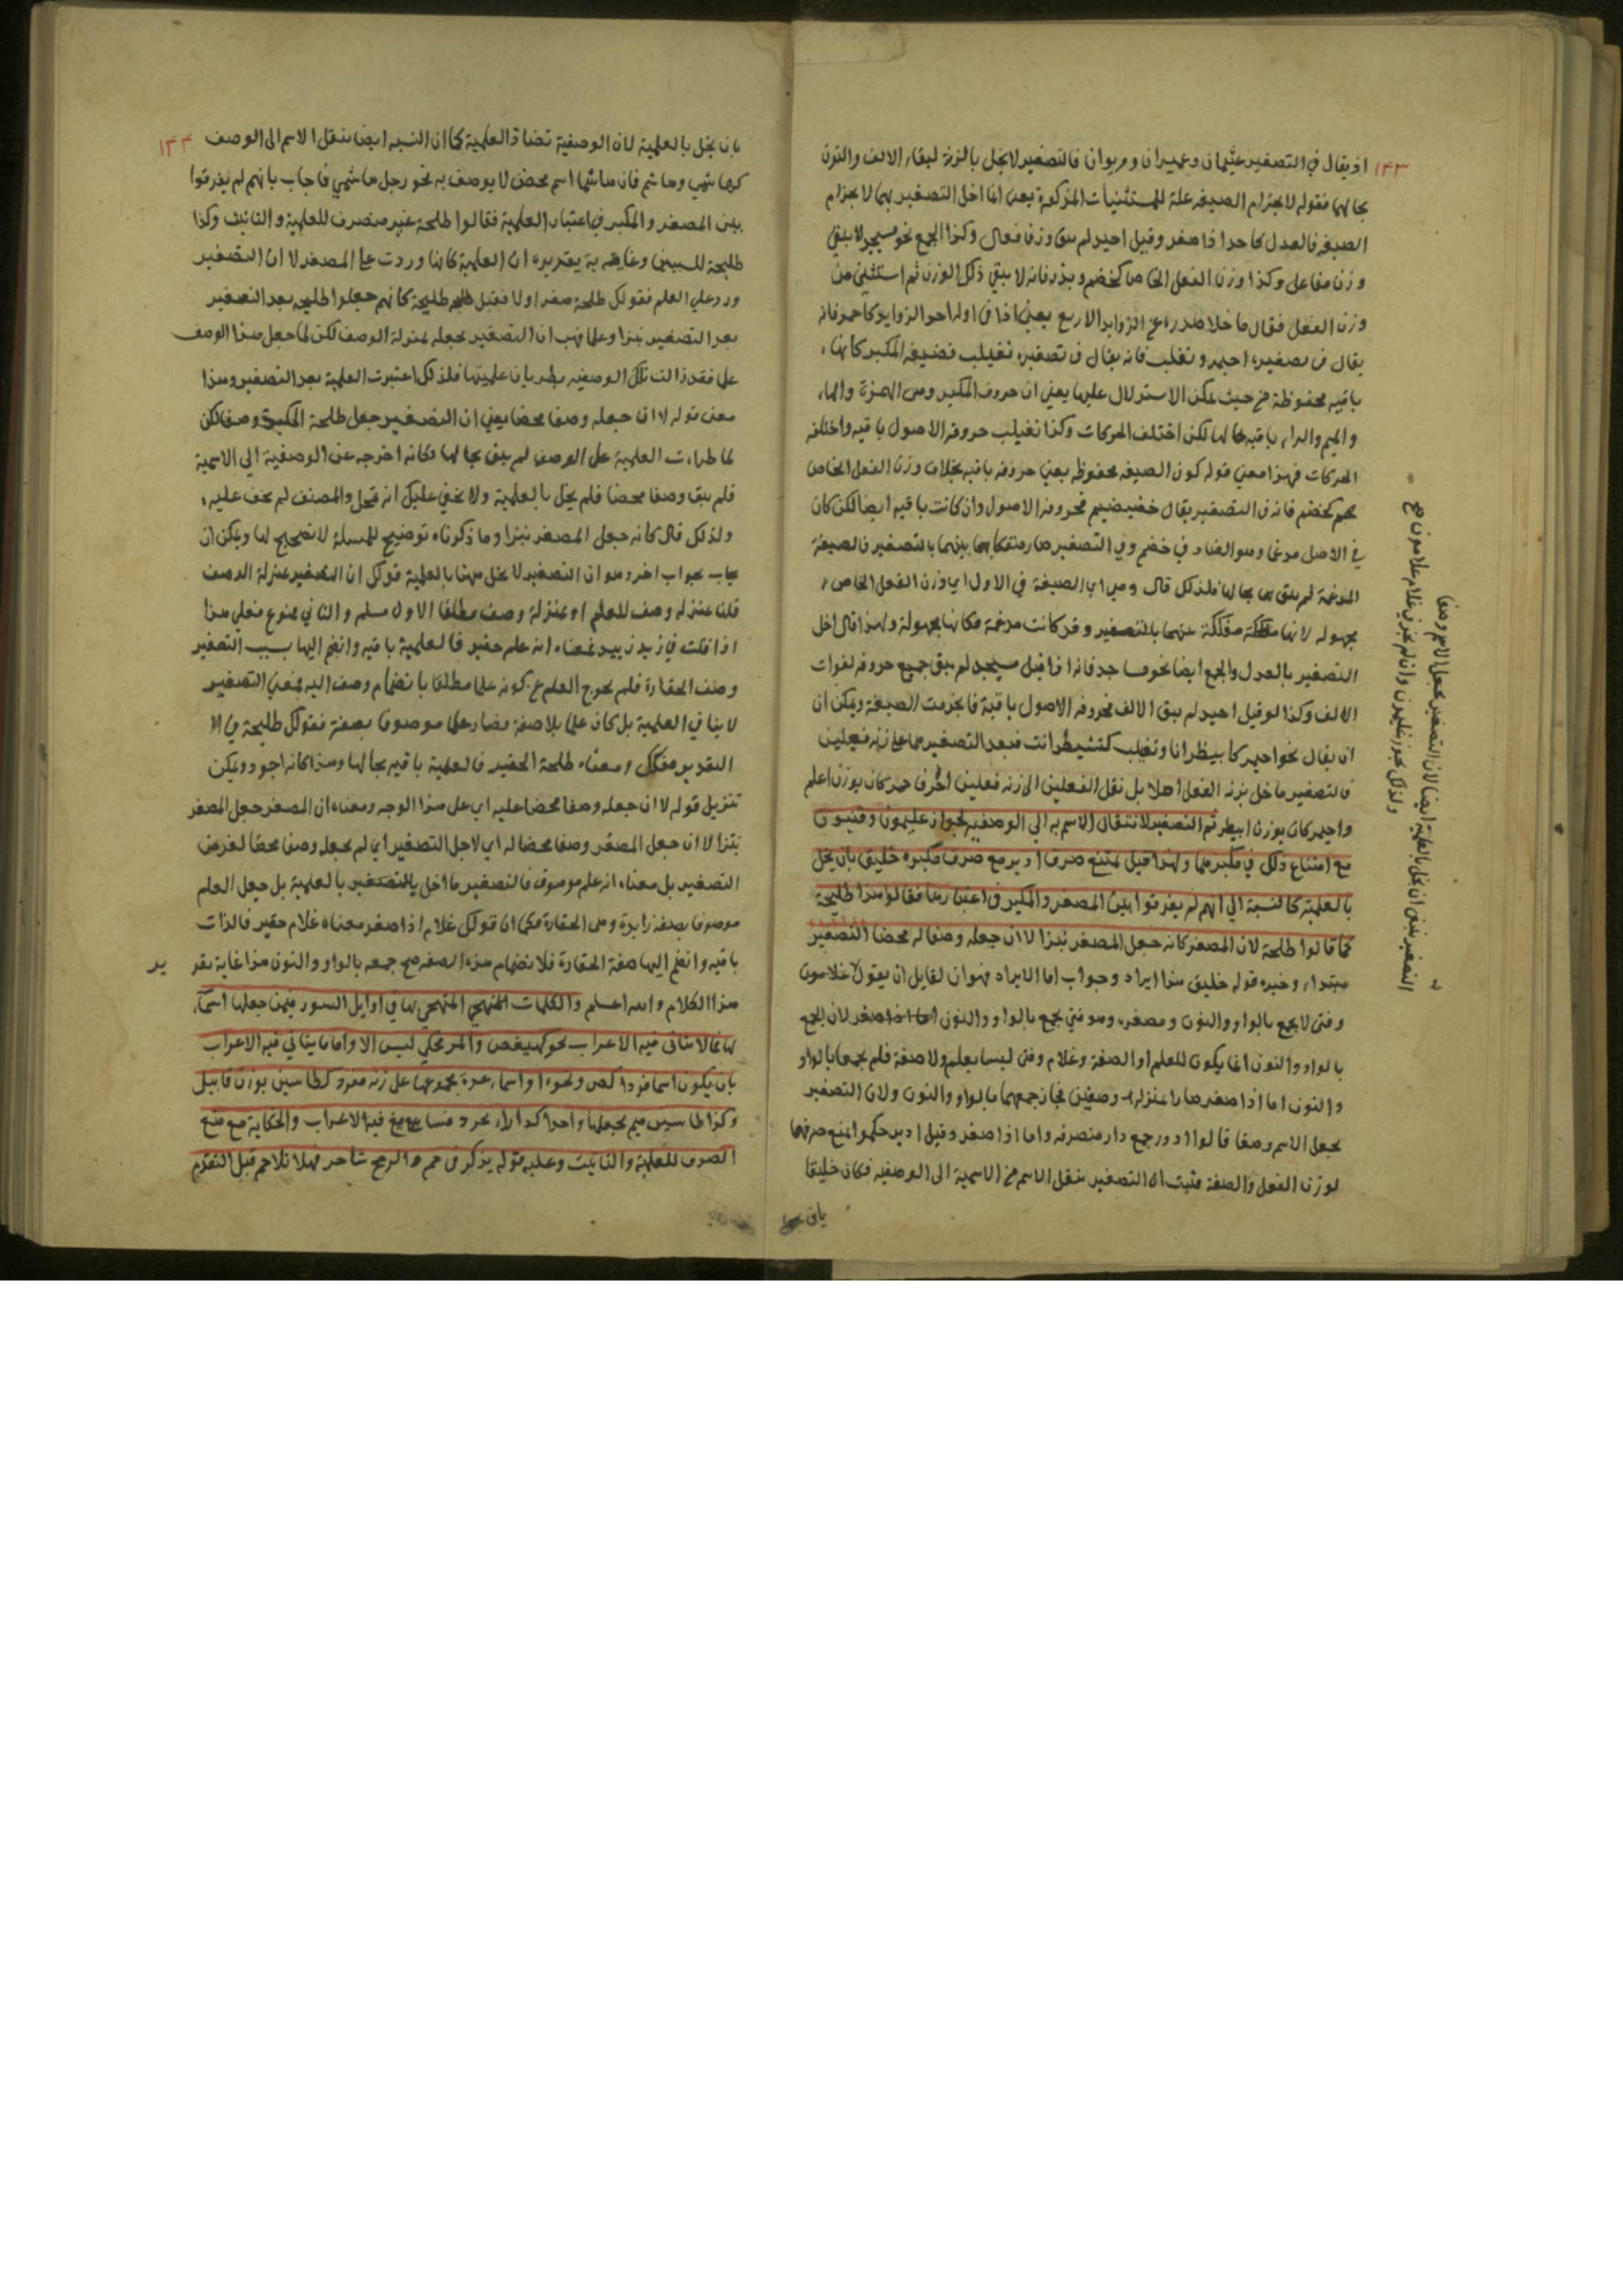 ١٤٣
اذ يقال في التصغير عثيمان وعميران ومريوان فالتصغير لا يخل بالزنة لبقاء الالف والنون
بحالهما فقوله لانخرام الصيغة علة للمستثنيات المذكورة يعني انما اخل التصغير بها لانخرام
الصيغة فالعدل كاحد اذا صغر وقيل احيد لم يبق وزن فعال وكذا الجمع نحو مسيجد لا يبقى
وزن مفاعل وكذا وزن الفعل الخاص كخضم وبذر فانه لا يبقى ذلك الوزن ثم استثنى من
وزن الفعل فقال ما خلا صدره من الزوايد الاربع يعني اذا في اوله احد الزوايد كاحمر فانه
يقال في تصغيره احيمر وتغلب فانه يقال في تصغيره تغيلب فصيغة المكبر كانها
باقية محفوظة من حيث يمكن الاستدلال عليها يعني ان حروف المكبر وهي الهمزة والحاء
والميم والراء باقية بحالها لكن اختلف الحركات وكذا تغيلب حروفه الاصول باقية واختلف
الحركات فهذا معنى قوله كون الصيغة محفوظة يعني حروفه باقية بخلاف وزن الفعل الخاص
كخضم فانه في التصغير يقال خضيضيم فحروفه الاصول وان كانت باقية ايضا لكن كان
في الاصل مدغما وهو الضاد في خضم وفي التصغير صار منفكا بينهما بالتصغير فالصيغة
المدغمة لم يبق بحالها فلذلك قال وهي اي الصيغة في الاول اي وزن الفعل الخاص
مجهولة لانها مفككة عنهما بالتصغير وقد كانت مدغمة فكانها مجهولة ولهذا قال اخل
التصغير بالعدل والجمع ايضا نحو مساجد فانه اذا قيل مسيجد لم يبق جميع حروفه لفوات
الالف وكذا لو قيل احيد لم يبق الالف فحروفه الاصول باقية فانخرمت الصيغة ويمكن ان
ان يقال نحو احيمر كابيطر انا وتغيلب كتشيطر انت فبعد التصغير هما على زنة فعلين
فالتصغير ما خل بزنة الفعل اصلا بل نقل الفعلين الى زنة فعلين اخر فاحمر كان بوزن اعلم
واحيمر كان بوزن ابيطر ثم التصغير لانتقال الاسم به الى الوصفية لجواز غليمون وفتيون
مع امتناع ذلك في مكبرهما ولهذا قيل يمتنع صرف اديرر مع صرف مكبره خليق بان يخل
بالعلمية كالنسبة الى انهم لم يفرقوا بين المصغر والمكبر في اعتبارها فقالوا هذا طليحة
كما قالوا طلحة لان المصغر كانه جعل المصغر نبزا لا ان جعله وصفا له محضا التصغير
مبتداء وخبره قوله خليق هذا ايراد وجواب اما الايراد فهو ان لقايل ان يقول غلامون
وفتى لا يجمع بالواو والنون ومصغره وهو فتي يجمع بالواو والنون لان الجمع
بالواو والنون انما يكون للعلم او الصفة وغلام وفتى ليسا بعلم ولا صفة فلم يجمعا بالواو
والنون اما اذا صغر صارا بمنزلة وصفين فجاز جمعهما بالواو والنون ولان التصغير
يجعل الاسم وصفا قالوا ادور جمع دار منصرفة واما اذا صغر وقيل ادير حكموا بمنع صرفها
لوزن الفعل والصفة فثبت ان التصغير ينقل الاسم من الاسمية الى الوصفية فكان خليقا
بان
التصغير ينبغي ان يخل بالعلمية ايضا لان التصغير يجعل الاسم وصفا
ولذلك يجوز غليمون وان لم يجز في غلام غلامون صح
١٤٤
بان يخل بالعلمية لان الوصفية تضاد العلمية كما ان النسبة ايضا ينقل الاسم الى الوصف
كهاشمي وهاشم فان هاشما اسم محض لا يوصف به نحو رجل هاشمي فاجاب بانهم لم يفرقوا
بين المصغر والمكبر في اعتبار العلمية فقالوا طلحة غير منصرف للعلمية والتانيث وكذا
طليحة للسببين وغاية تقريره ان العلمية كانها وردت على المصغر لا ان التصغير
ورد على العلم فقولك طلحة صغر اولا فقيل طليحة كانهم جعلوا طليحة بعد التصغير
بعد التصغير نبزا وعلما فهب ان التصغير يجعله بمنزلة الوصف لكن لما جعل هذا الوصف
علما فقد زالت تلك الوصفية بطريان علميتها فلذلك اعتبرت العلمية بعد التصغير وهذا
معنى قوله لا ان جعله وصفا محضا يعني ان التصغير جعل طلحة المكبرة وصفا لكن
لما طراءت العلمية على الوصف لم يبق بحالها وكانه اخرجه عن الوصفية الى الاسمية
فلم يبق وصفا محضا فلم يخل بالعلمية ولا يخفى عليك انه تمحل والمصنف لم يخف عليه
ولذلك قال كانه جعل المصغر نبزا وما ذكرناه توضيح للمسلة لا تصحيح لها ويمكن ان
يجاب بجواب اخر وهو ان التصغير لا يخل ههنا بالعلمية قولك ان التصغير بمنزلة الوصف
قلنا بمنزلة وصف للعلم او بمنزلة وصف مطلقا الاول مسلم والثاني ممنوع فعلى هذا
اذا قلت في زيد زييد فمعناه انه علم حقير فالعلمية باقية وانضم اليها بسبب التصغير
وصف الحقارة فلم يخرج العلم عن كونه علما مطلقا بانضمام وصف اليه فمعنى التصغير
لا ينافي العلمية بل كان علما بلا صفة فصار علما موصوفا بصفة فقولك طليحة في
التقدير معناه طلحة الحقير فالعلمية باقية بحالها وهذا كانه اجود ويمكن
تنزيل قوله لا ان جعله وصفا محضا عليه اي على هذا الوجه ومعناه ان المصغر جعل المصغر
نبزا لا ان جعل المصغر وصفا محضا له اي لاجل التصغير اي لم يجعله وصفا محضا لغرض
التصغير بل معناه انه علم موصوف فالتصغير ما اخل بالعلمية بل جعل العلم
موصوفا بصفة زايدة وهي الحقارة فكما ان قولك غلام اذا صغر معناه غلام حقير فالذات
باقية وانضم اليها صفة الحقارة فلانضمام هذه الصفة صح جمعه بالواو والنون هذا غاية تقر
ير
هذا الكلام والله اعلم والكلمات المتهجي المتهجي بها في اوايل السور فيمن جعلها اسماء
لها مما لا يتاتى فيه الاعراب نحو كهيعص والمر محكي ليس الا واما ما يتاتى فيه الاعراب
بان يكون اسما فردا كص ونحوه او اسماء عدة مجموعها على زنة مفرد كطاسين بوزن قابيل
وكذا طاسين ميم بجعلها واحدا كدارابجرد فسايغ فيه الاعراب والحكاية مع منع
الصرف للعلمية والتانيث وعليه قوله يذكرني حم والرمح شاجر فهلا تلا حم قبل التقدم